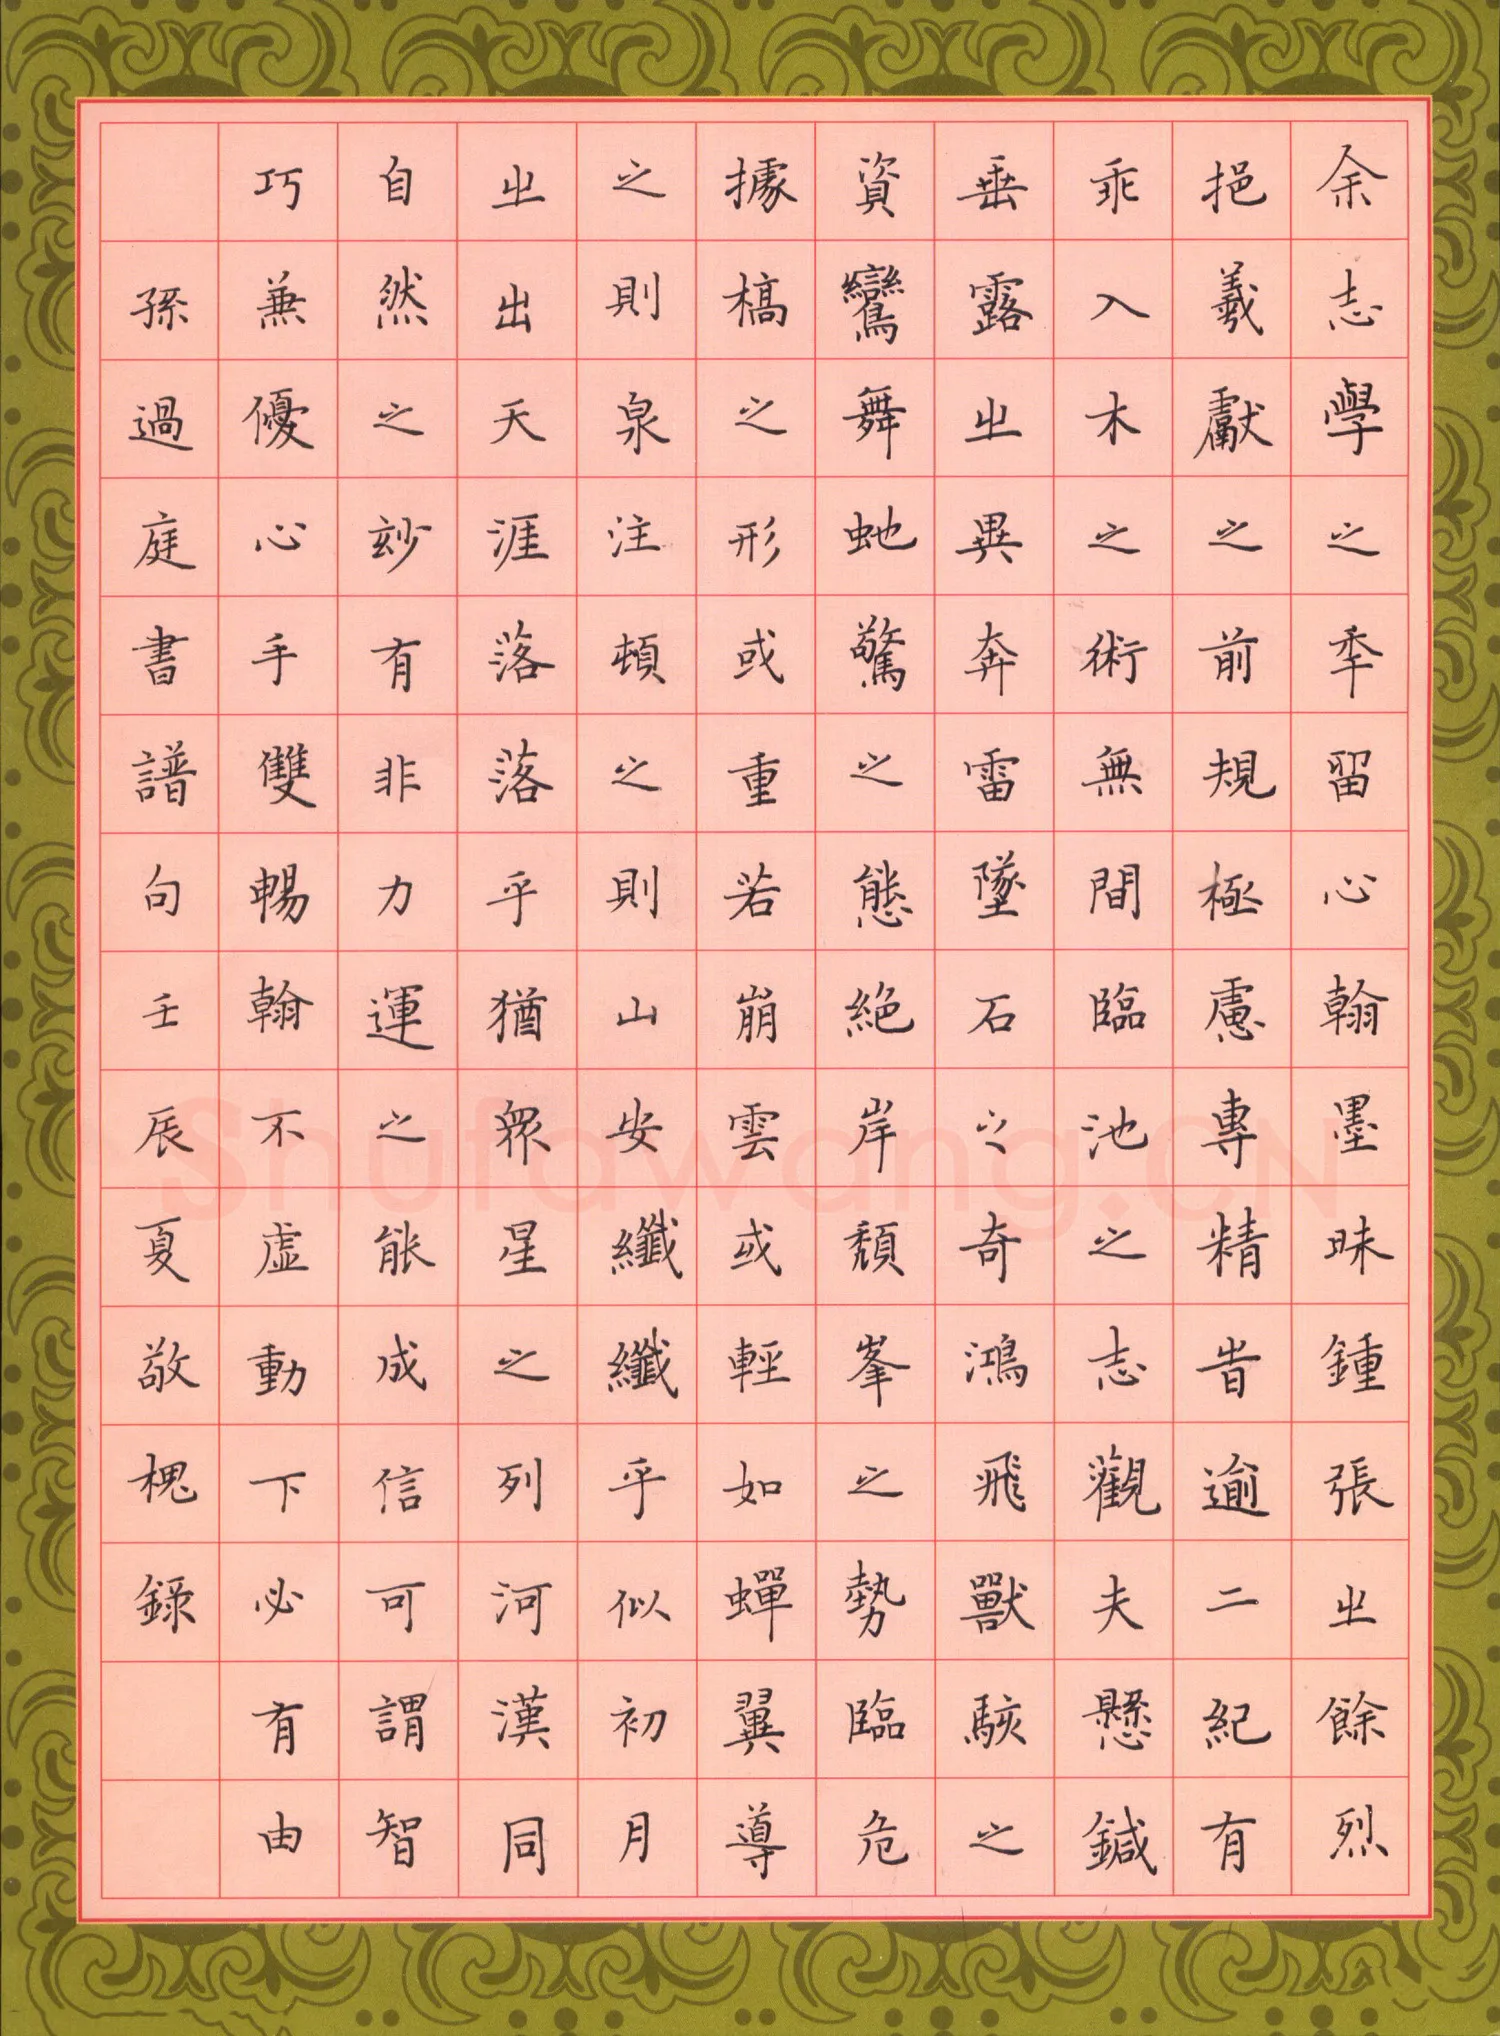 余志學之秊留心翰墨昧鍾張㞢餘烈
挹羲獻之前規極慮專精旹逾二紀有
乖入木之術無間臨池之志觀夫懸鍼
垂露㞢異奔雷墜石之奇鴻飛獸駭之
資鸞舞虵驚之態絕岸頹峯之勢臨危
據槁之形或重若崩雲或輕如蟬翼導
之則泉注頓之則山安纖纖乎似初月
㞢出天涯落落乎猶衆星之列河漢同
自然之玅有非力運之能成信可謂智
巧兼優心手雙暢翰不虛動下必有由
孫過庭書譜句壬辰夏敬槐錄
Shufawang.CN